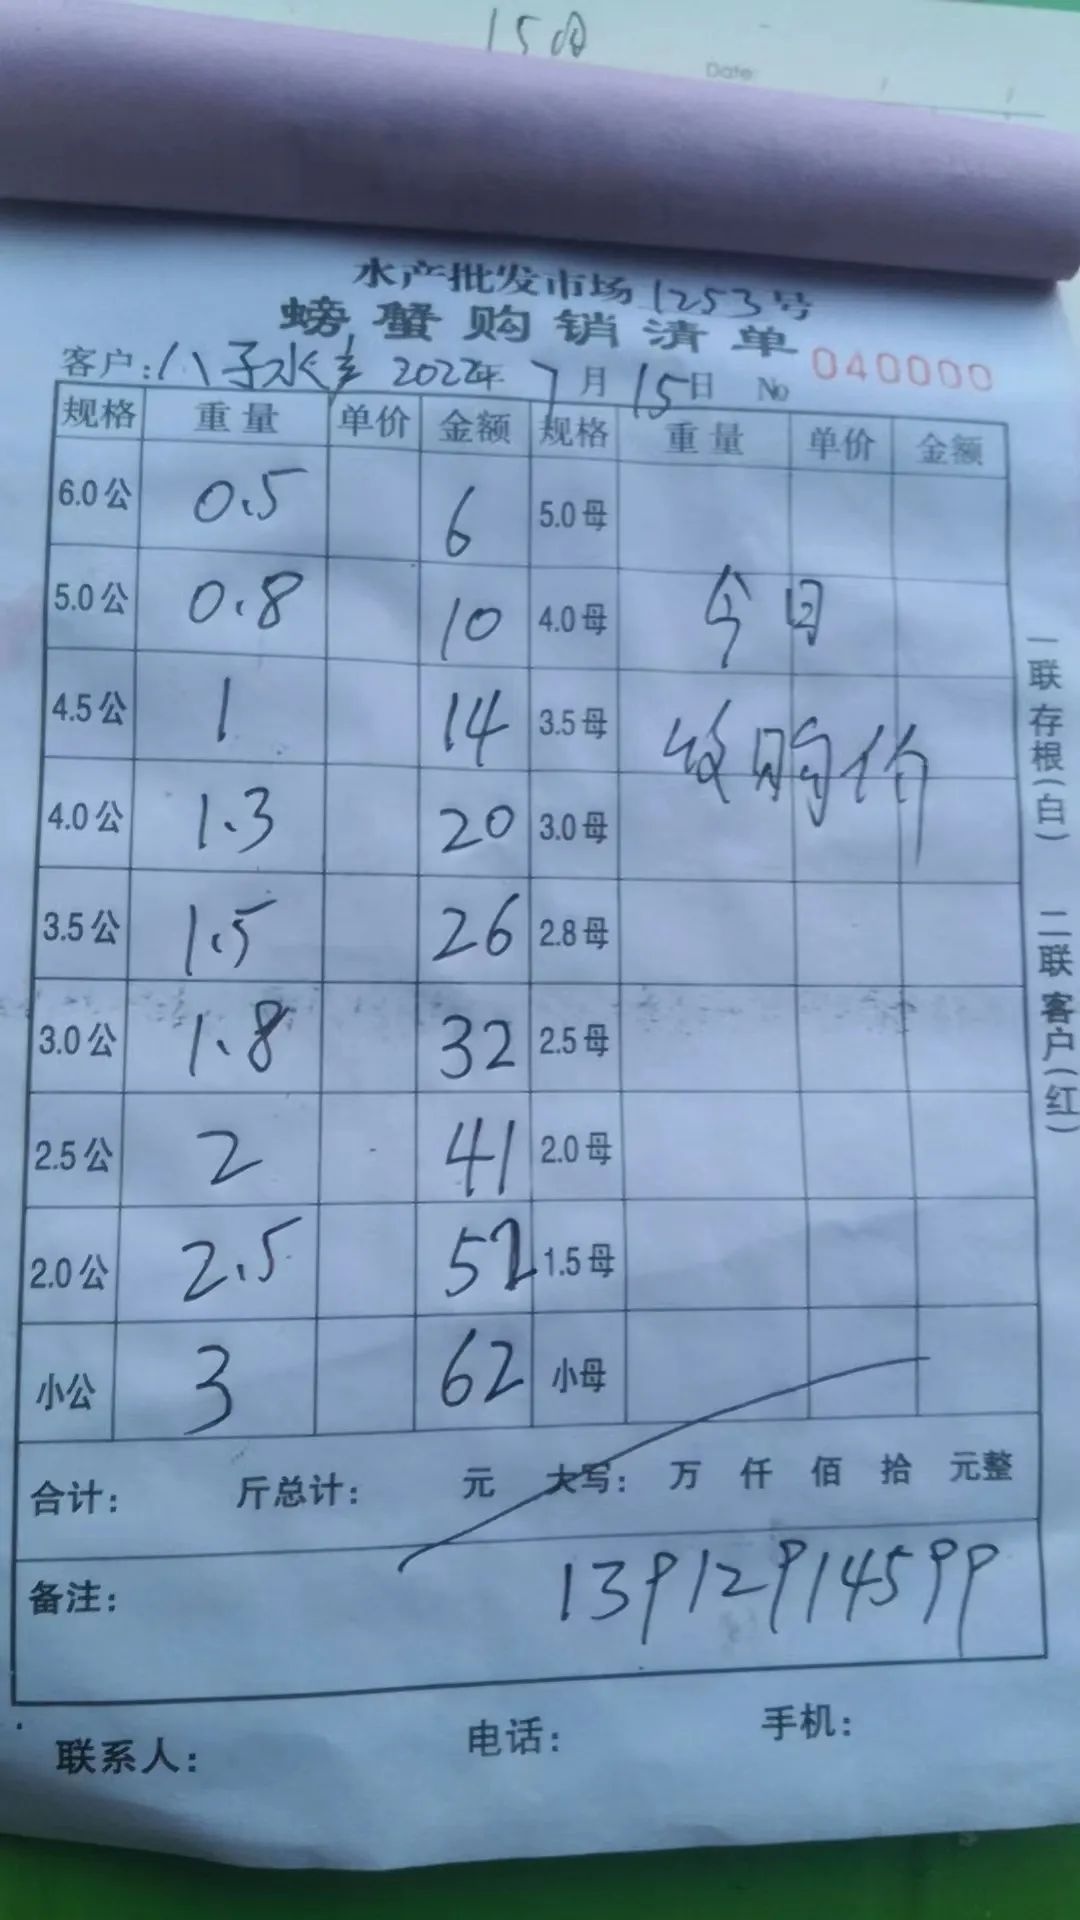 1500
Date:
水产批发市场1253号
螃蟹购销清单
客户:八子水产 2022年 7月15日 No 040000
规格 重量 单价 金额 规格 重量 单价 金额
6.0公 0.5 6 5.0母
5.0公 0.8 10 4.0母 今日
4.5公 1 14 3.5母 收购价
4.0公 1.3 20 3.0母
3.5公 1.5 26 2.8母
3.0公 1.8 32 2.5母
2.5公 2 41 2.0母
2.0公 2.5 52 1.5母
小公 3 62 小母
合计: 斤总计: 元 大写: 万 仟 佰 拾 元整
备注: 13912914599
联系人: 电话: 手机:
一联存根(白) 二联客户(红)